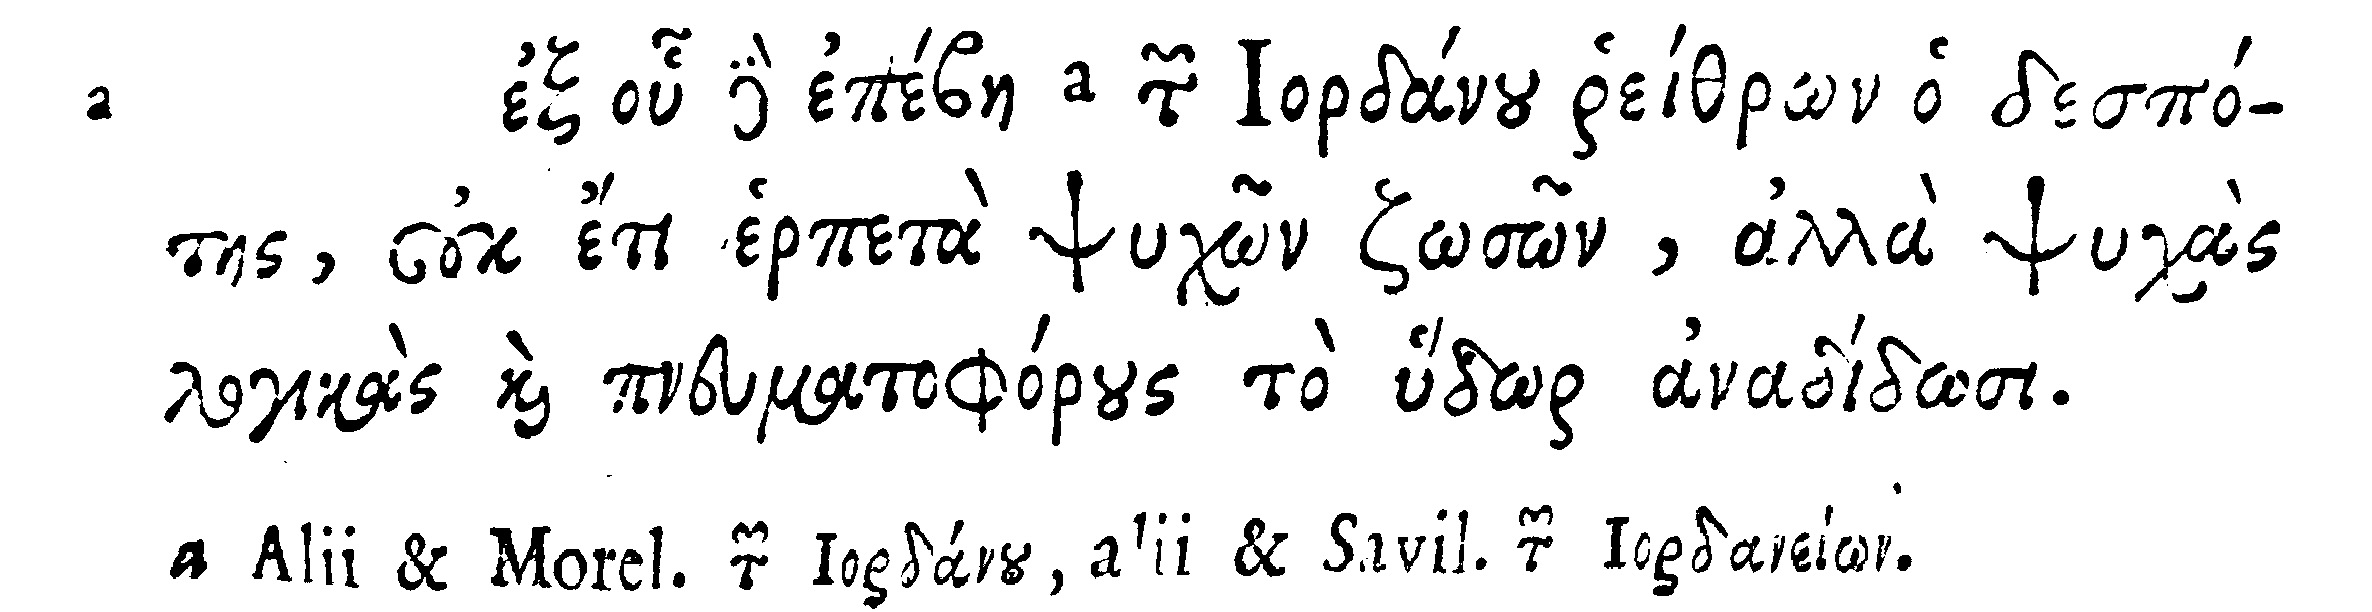 a ἐξ οὗ δὲ ἐπέβη a τῶν Ιορδάνου ῥείθρων ὁ δεσπό-
της, οὐκ ἔτι ἑρπετὰ ψυχῶν ζωσῶν, ἀλλὰ ψυχὰς
λογικὰς καὶ πνευματοφόρους τὸ ὕδωρ ἀναδίδωσι.
a Alii & Morel. τῶν Ιορδάνου, alii & Savil. τῶν Ιορδανείων.